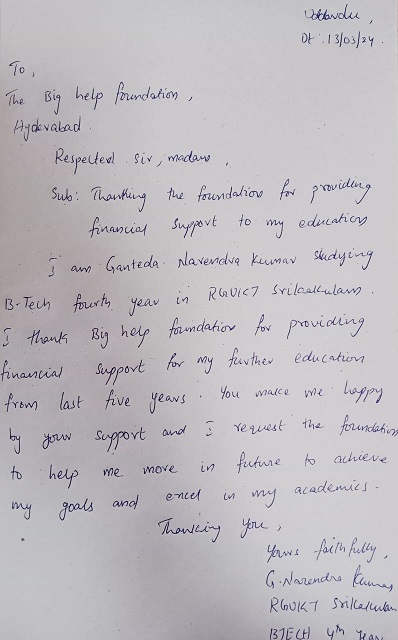 Dt : 13/03/24.
To,
The Big help foundation,
Hyderabad.
Respected sir, madam,
Sub: Thanking the foundation for providing
financial support to my education
I am Ganteda. Narendra Kumar studying
B-Tech fourth year in RGUKT Srikakulam.
I thank Big help foundation for providing
financial support for my further education
from last five years. You make me happy
by your support and I request the foundation
to help me more in future to achieve
my goals and excel in my academics.
Thanking you,
Yours faithfully,
G. Narendra Kumar
RGUKT Srikakulam
BTECH 4th year